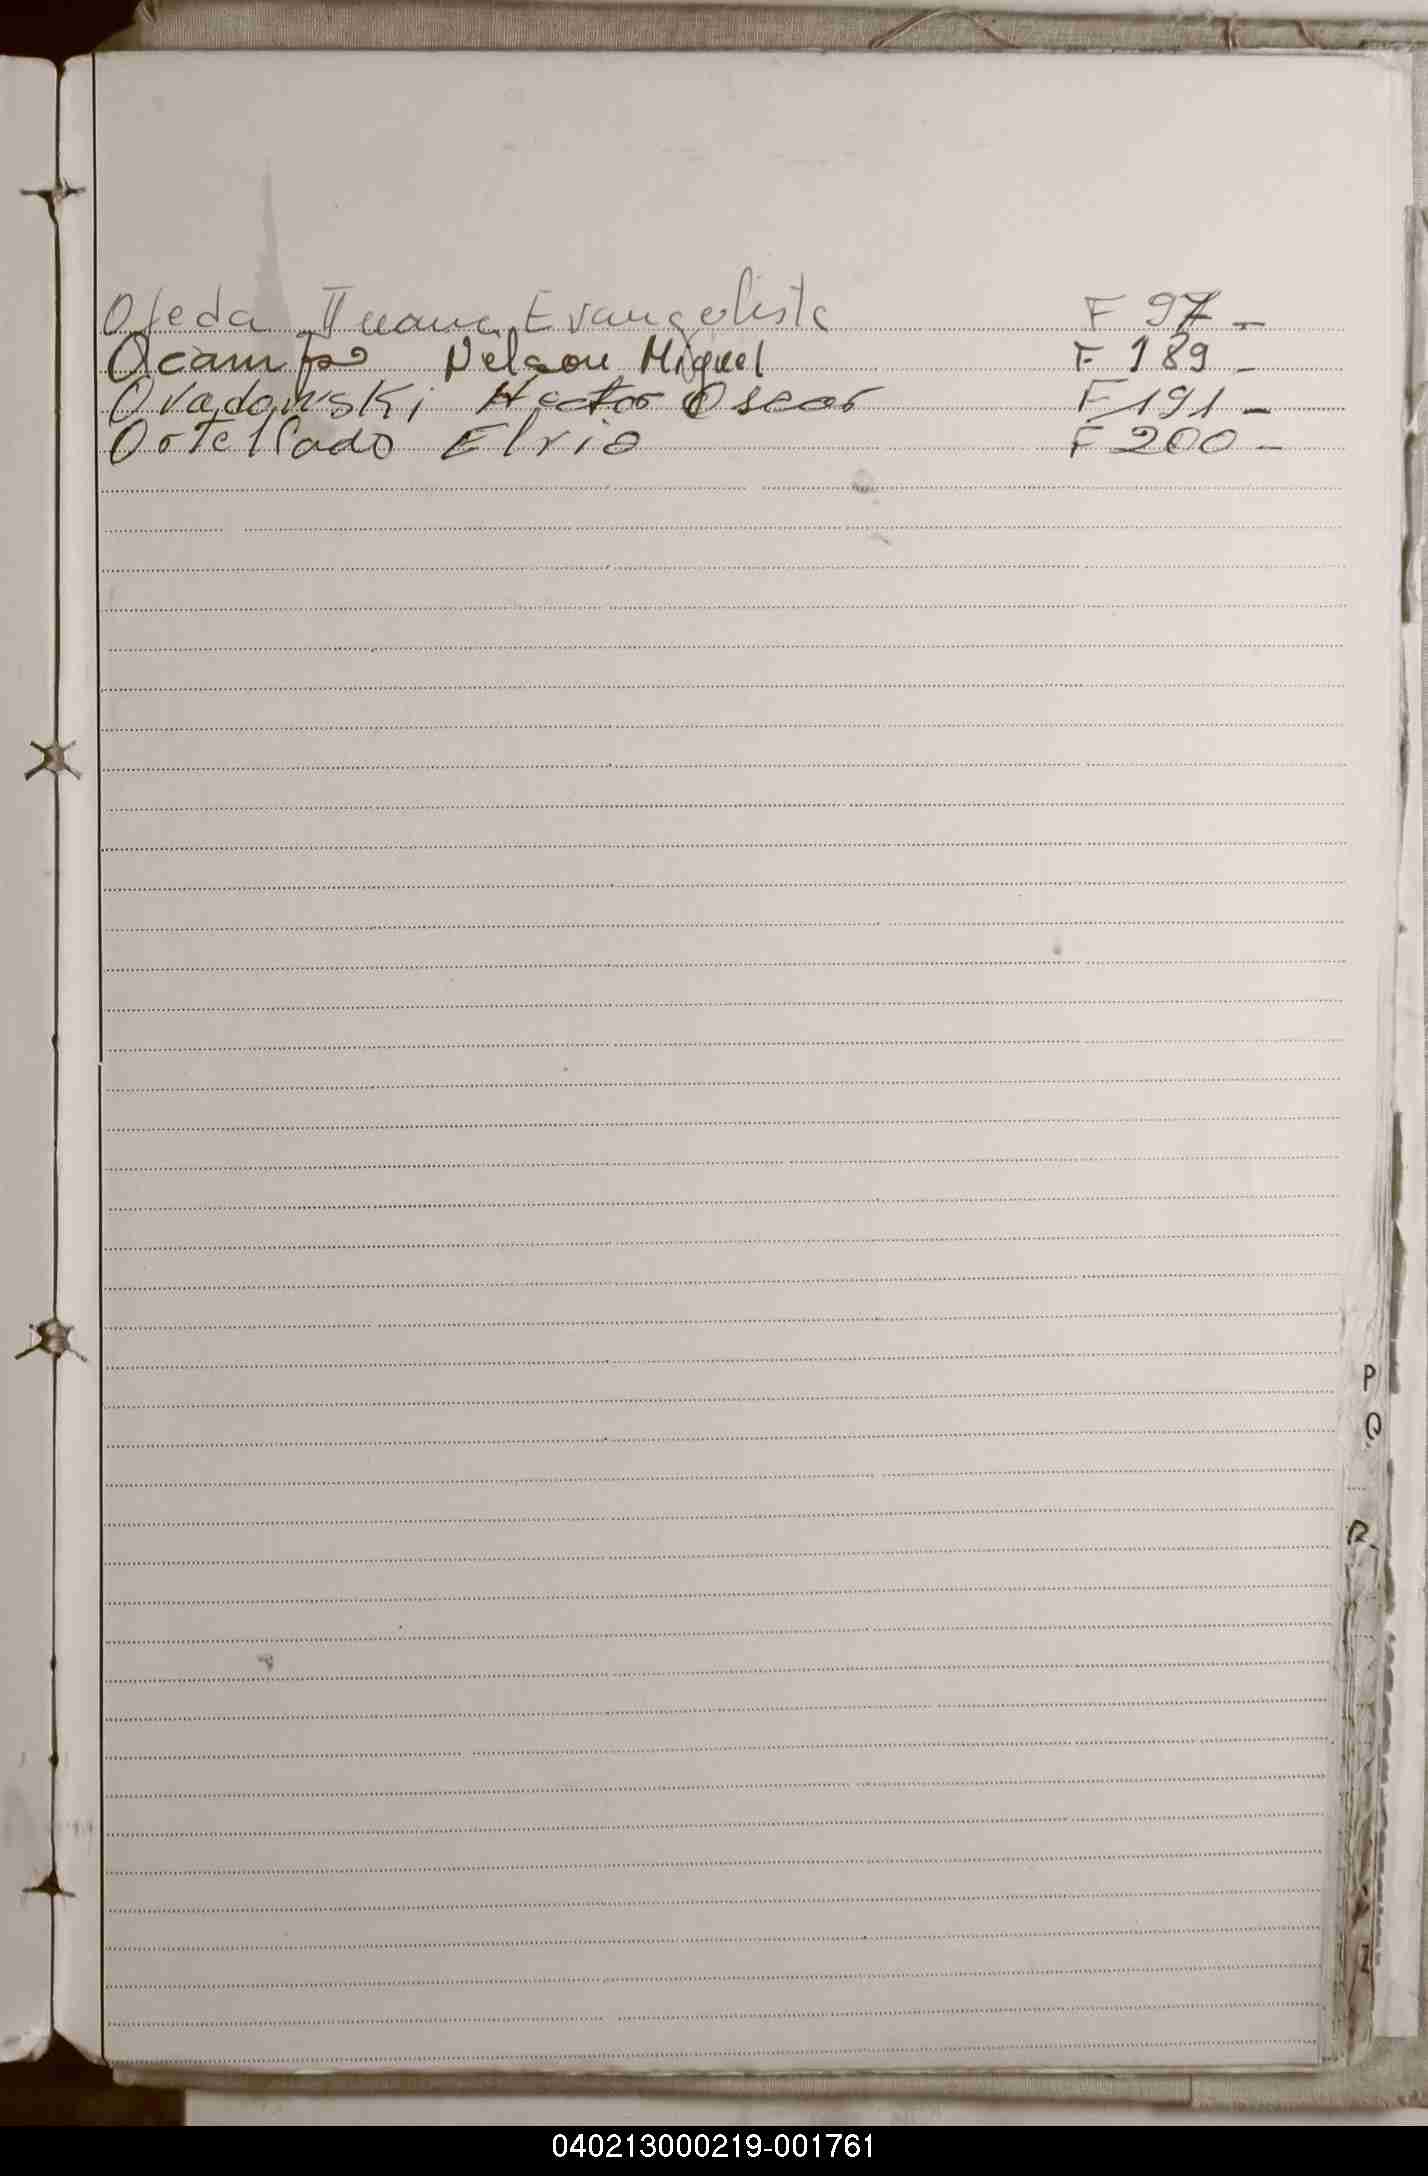 Ojeda Juana Evangelista F 97-
Ocampo Nelson Miguel F 189-
Ovadowski Hector Oscar F 191-
Ortellado Elvio F 200-
P
Q
R
Z
040213000219-001761